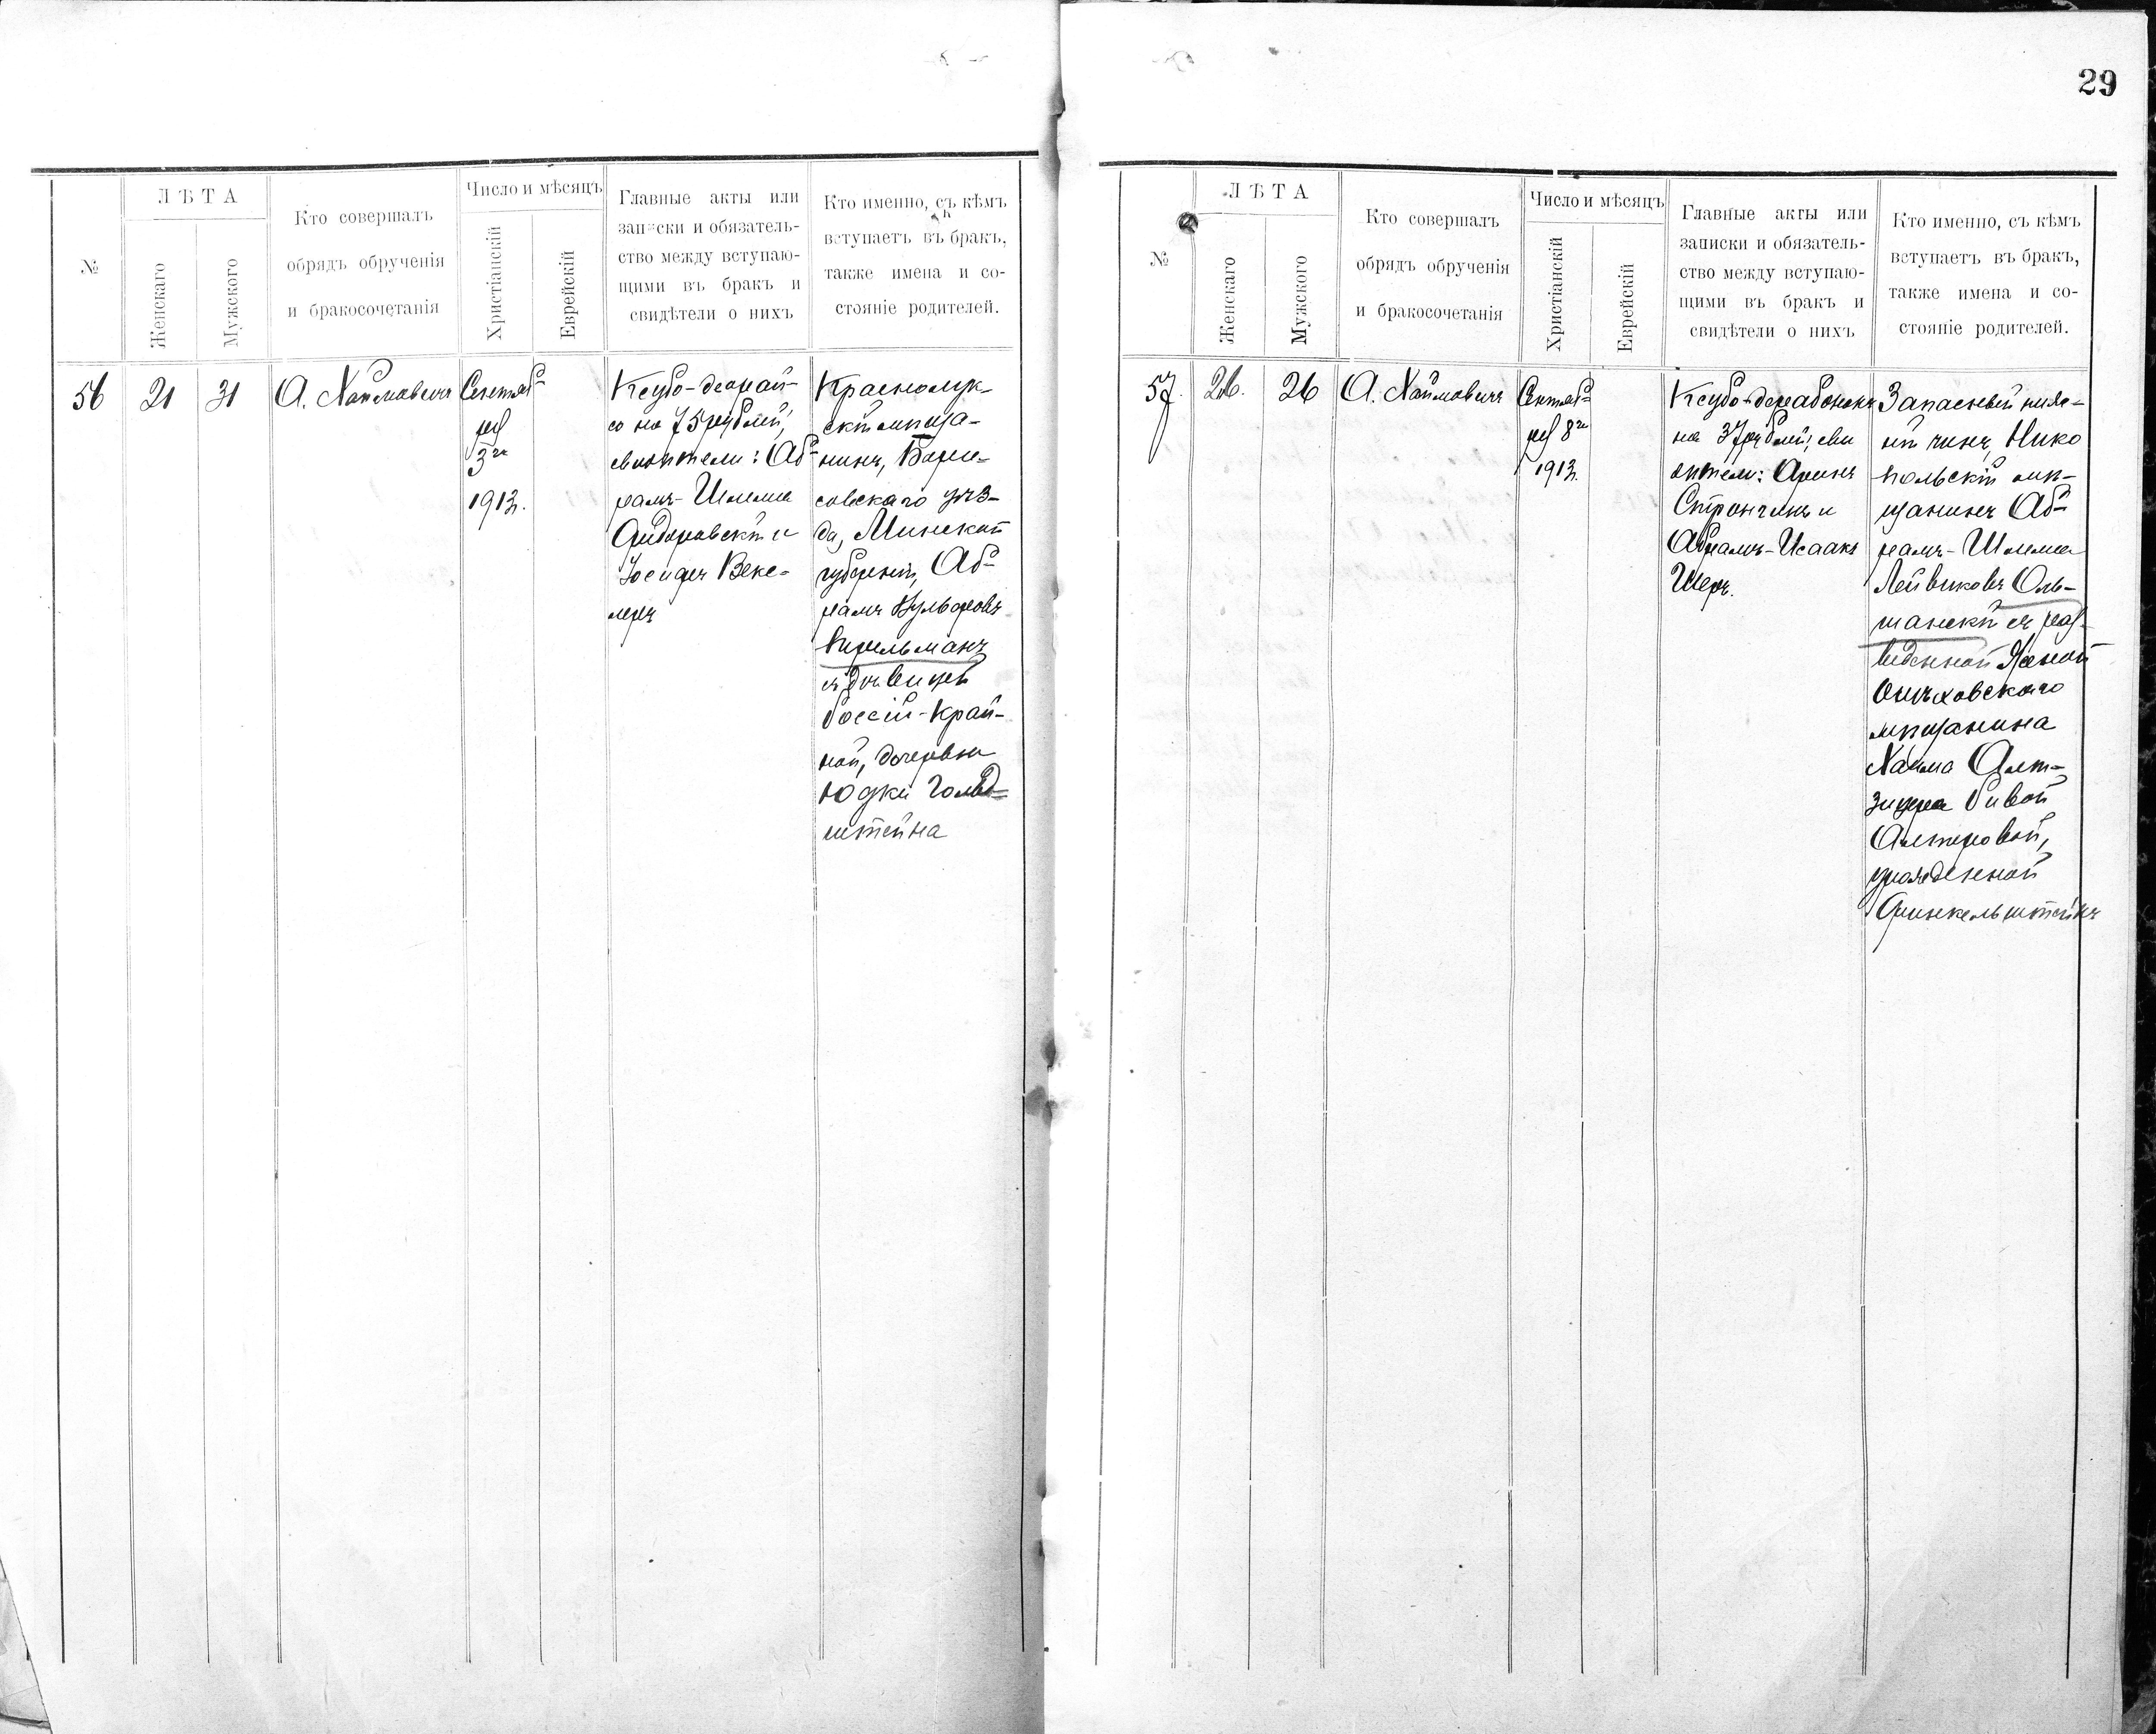 29
№
ЛѢТА
Женскаго
Мужского
Кто совершалъ
обрядъ обрученія
и бракосочетанія
Число и мѣсяцъ
Христіанскій
Еврейскій
Главные акты или
записки и обязатель-
ство между вступаю-
щими въ бракъ и
свидѣтели о нихъ
Кто именно, съ кѣмъ
вступаетъ въ бракъ,
также имена и со-
стояніе родителей.
56
21
31
А. Хаймовичъ
Сентяб-
ря
3го
1913 г.
Ксубо-деорай-
со на 75 рублей;
свидѣтели: Аб-
рамъ-Шлема
и
Іосифъ Векс-
леръ
Краснолук-
скій мѣща-
нинъ, Бори-
совскаго уѣз-
да, Минской
губерніи, Аб-
рамъ Вульфовъ
съ дѣвицей
Россіи-Край-
ной, дочерью
Юдки Гольд-
штейна
№
ЛѢТА
Женскаго
Мужского
Кто совершалъ
обрядъ обрученія
и бракосочетанія
Число и мѣсяцъ
Христіанскій
Еврейскій
Главные акты или
записки и обязатель-
ство между вступаю-
щими въ бракъ и
свидѣтели о нихъ
Кто именно, съ кѣмъ
вступаетъ въ бракъ,
также имена и со-
стояніе родителей.
57.
26.
26
А. Хаймовичъ
Сентяб-
ря 8го
1913 г.
Ксубо-дерабононъ
на 37 рублей; сви
дѣтели: Аронъ
Стронгинъ и
Абрамъ-Исаакъ
Шеръ.
Запасный ниж-
ній чинъ, Нико
польскій мѣ-
щанинъ Аб-
рамъ-Шлема
Лейвиковъ Оль-
шанскій съ раз-
веденной женой
мѣщанина
Хаима Альт-
Ривой
Алтеровой,
урожденной
Финкельштейнъ